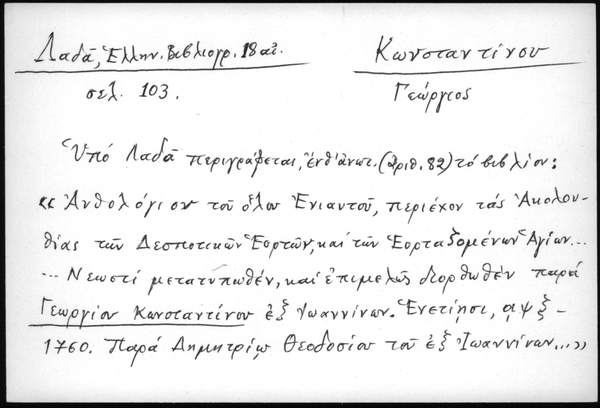 Λαδᾶ, Ἑλλην. Βιβλιογρ. 18 αἰ.
Κωνσταντίνου
σελ. 103.
Γεώργιος
Ὑπό Λαδᾶ περιγράφεται, ἔνθ' ἀνωτ. (ἀριθ. 82) τό βιβλίον:
«Ἀνθολόγιον τοῦ ὅλου Ἐνιαυτοῦ, περιέχον τάς Ἀκολου-
θίας τῶν Δεσποτικῶν Ἑορτῶν, καί τῶν Ἑορταζομένων Ἁγίων...
... Νεωστί μετατυπωθέν, καί ἐπιμελῶς διορθωθέν παρά
Γεωργίου Κωνσταντίνου ἐξ Ἰωαννίνων. Ἐνετίῃσι, αψξ -
1760. Παρά Δημητρίῳ Θεοδοσίου τοῦ ἐξ Ἰωαννίνων...»